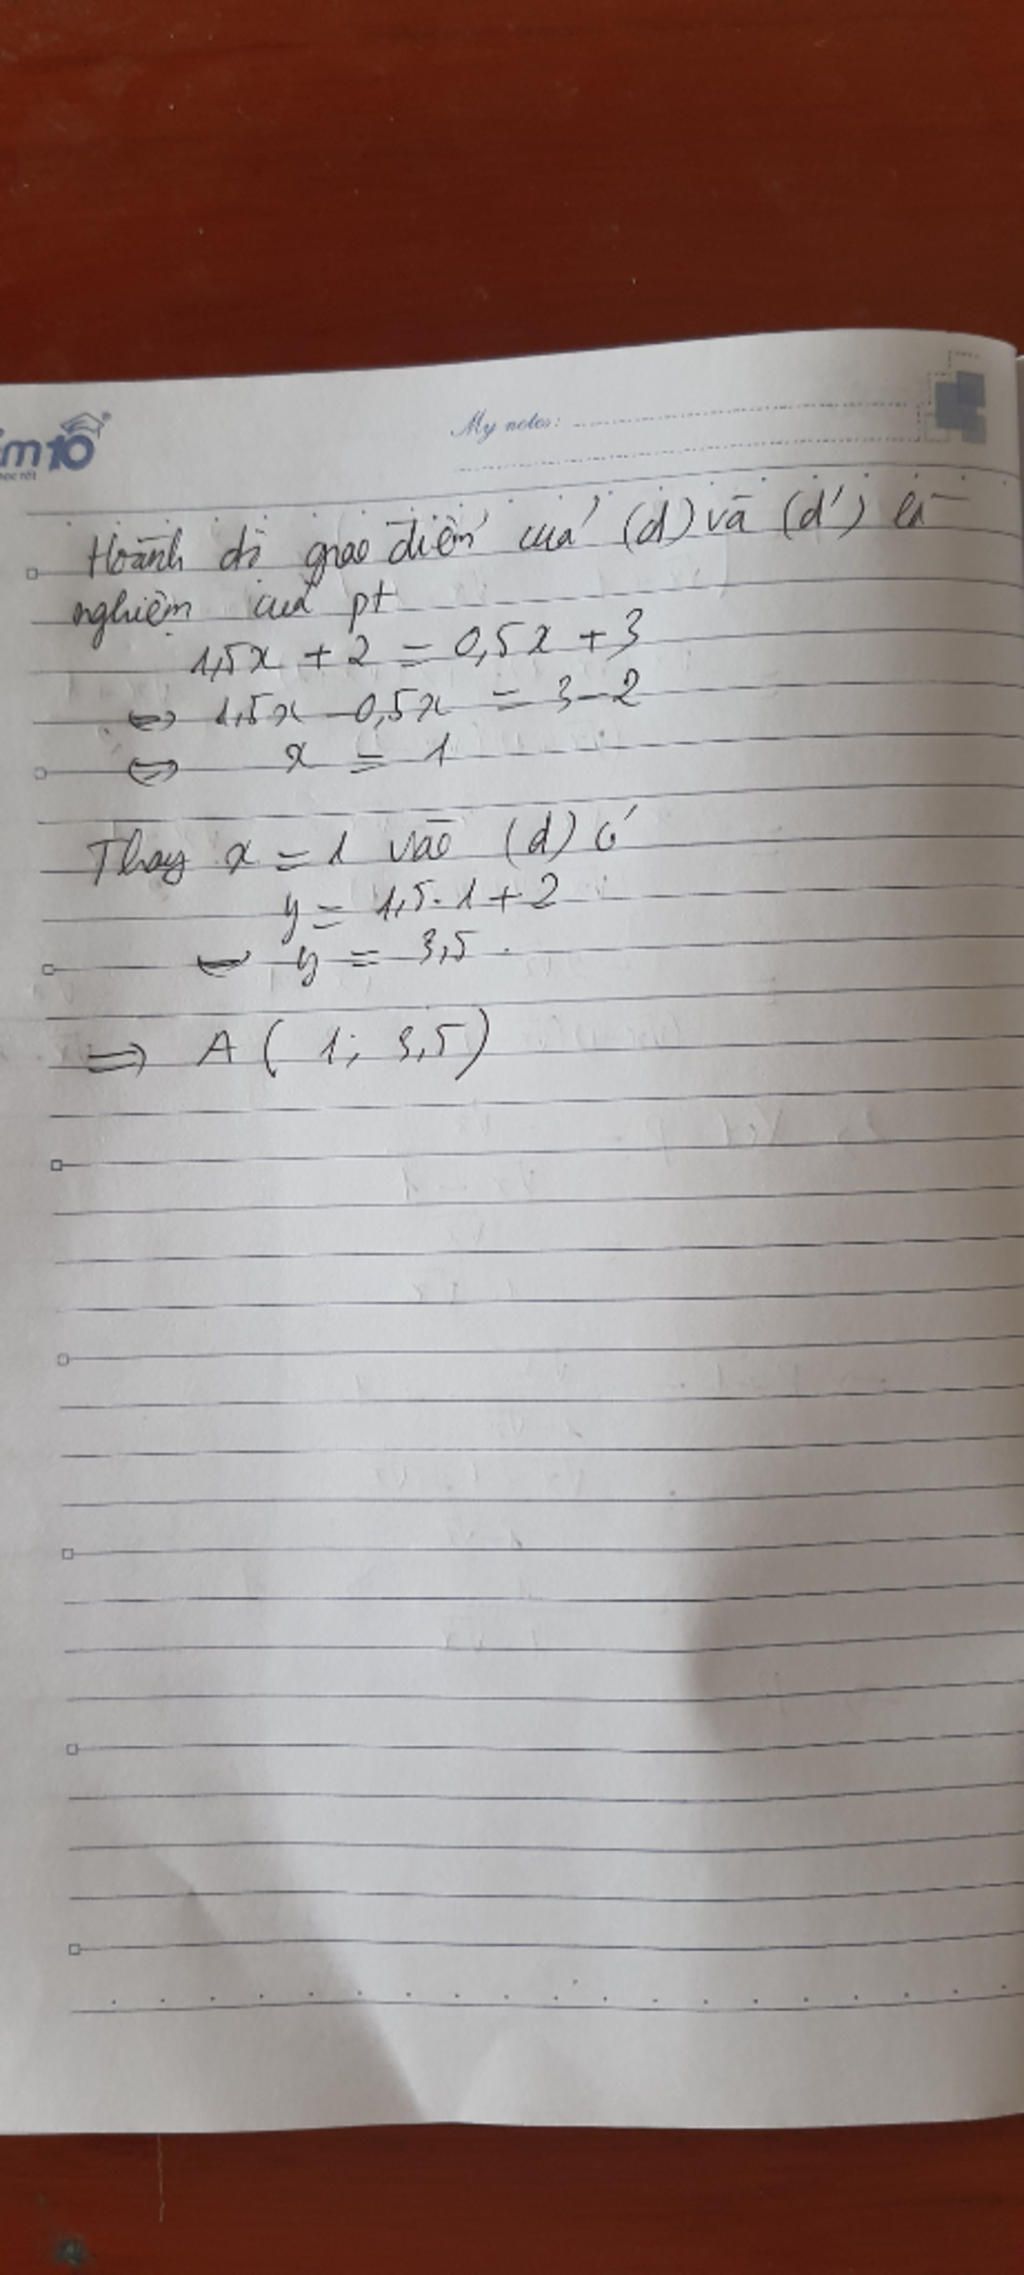 m10
học tốt
My notes:
Hoành độ giao điểm của (d) và (d') là
nghiệm của pt
1,5x + 2 = 0,5x + 3
⇔ 1,5x - 0,5x = 3 - 2
⇔ x = 1
Thay x = 1 vào (d) có
y = 1,5.1 + 2
⇔ y = 3,5.
⇒ A ( 1; 3,5)